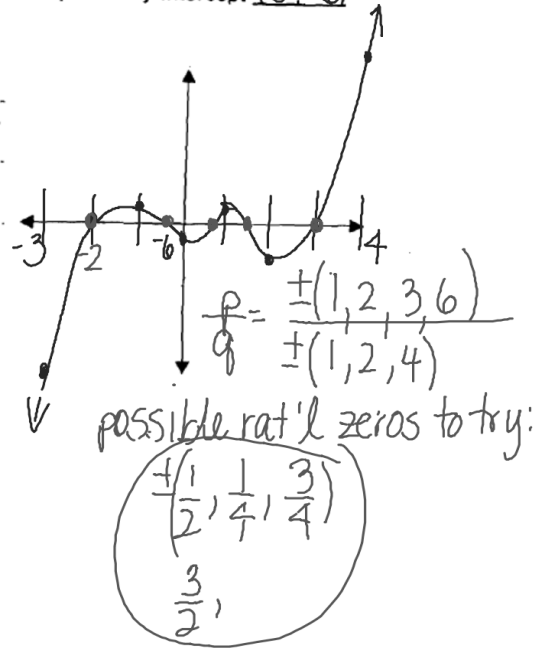 -3 -2 -6 4
p/q = ±(1,2,3,6) / ±(1,2,4)
possible rat'l zeros to try:
±(1/2, 1/4, 3/4)
3/2,